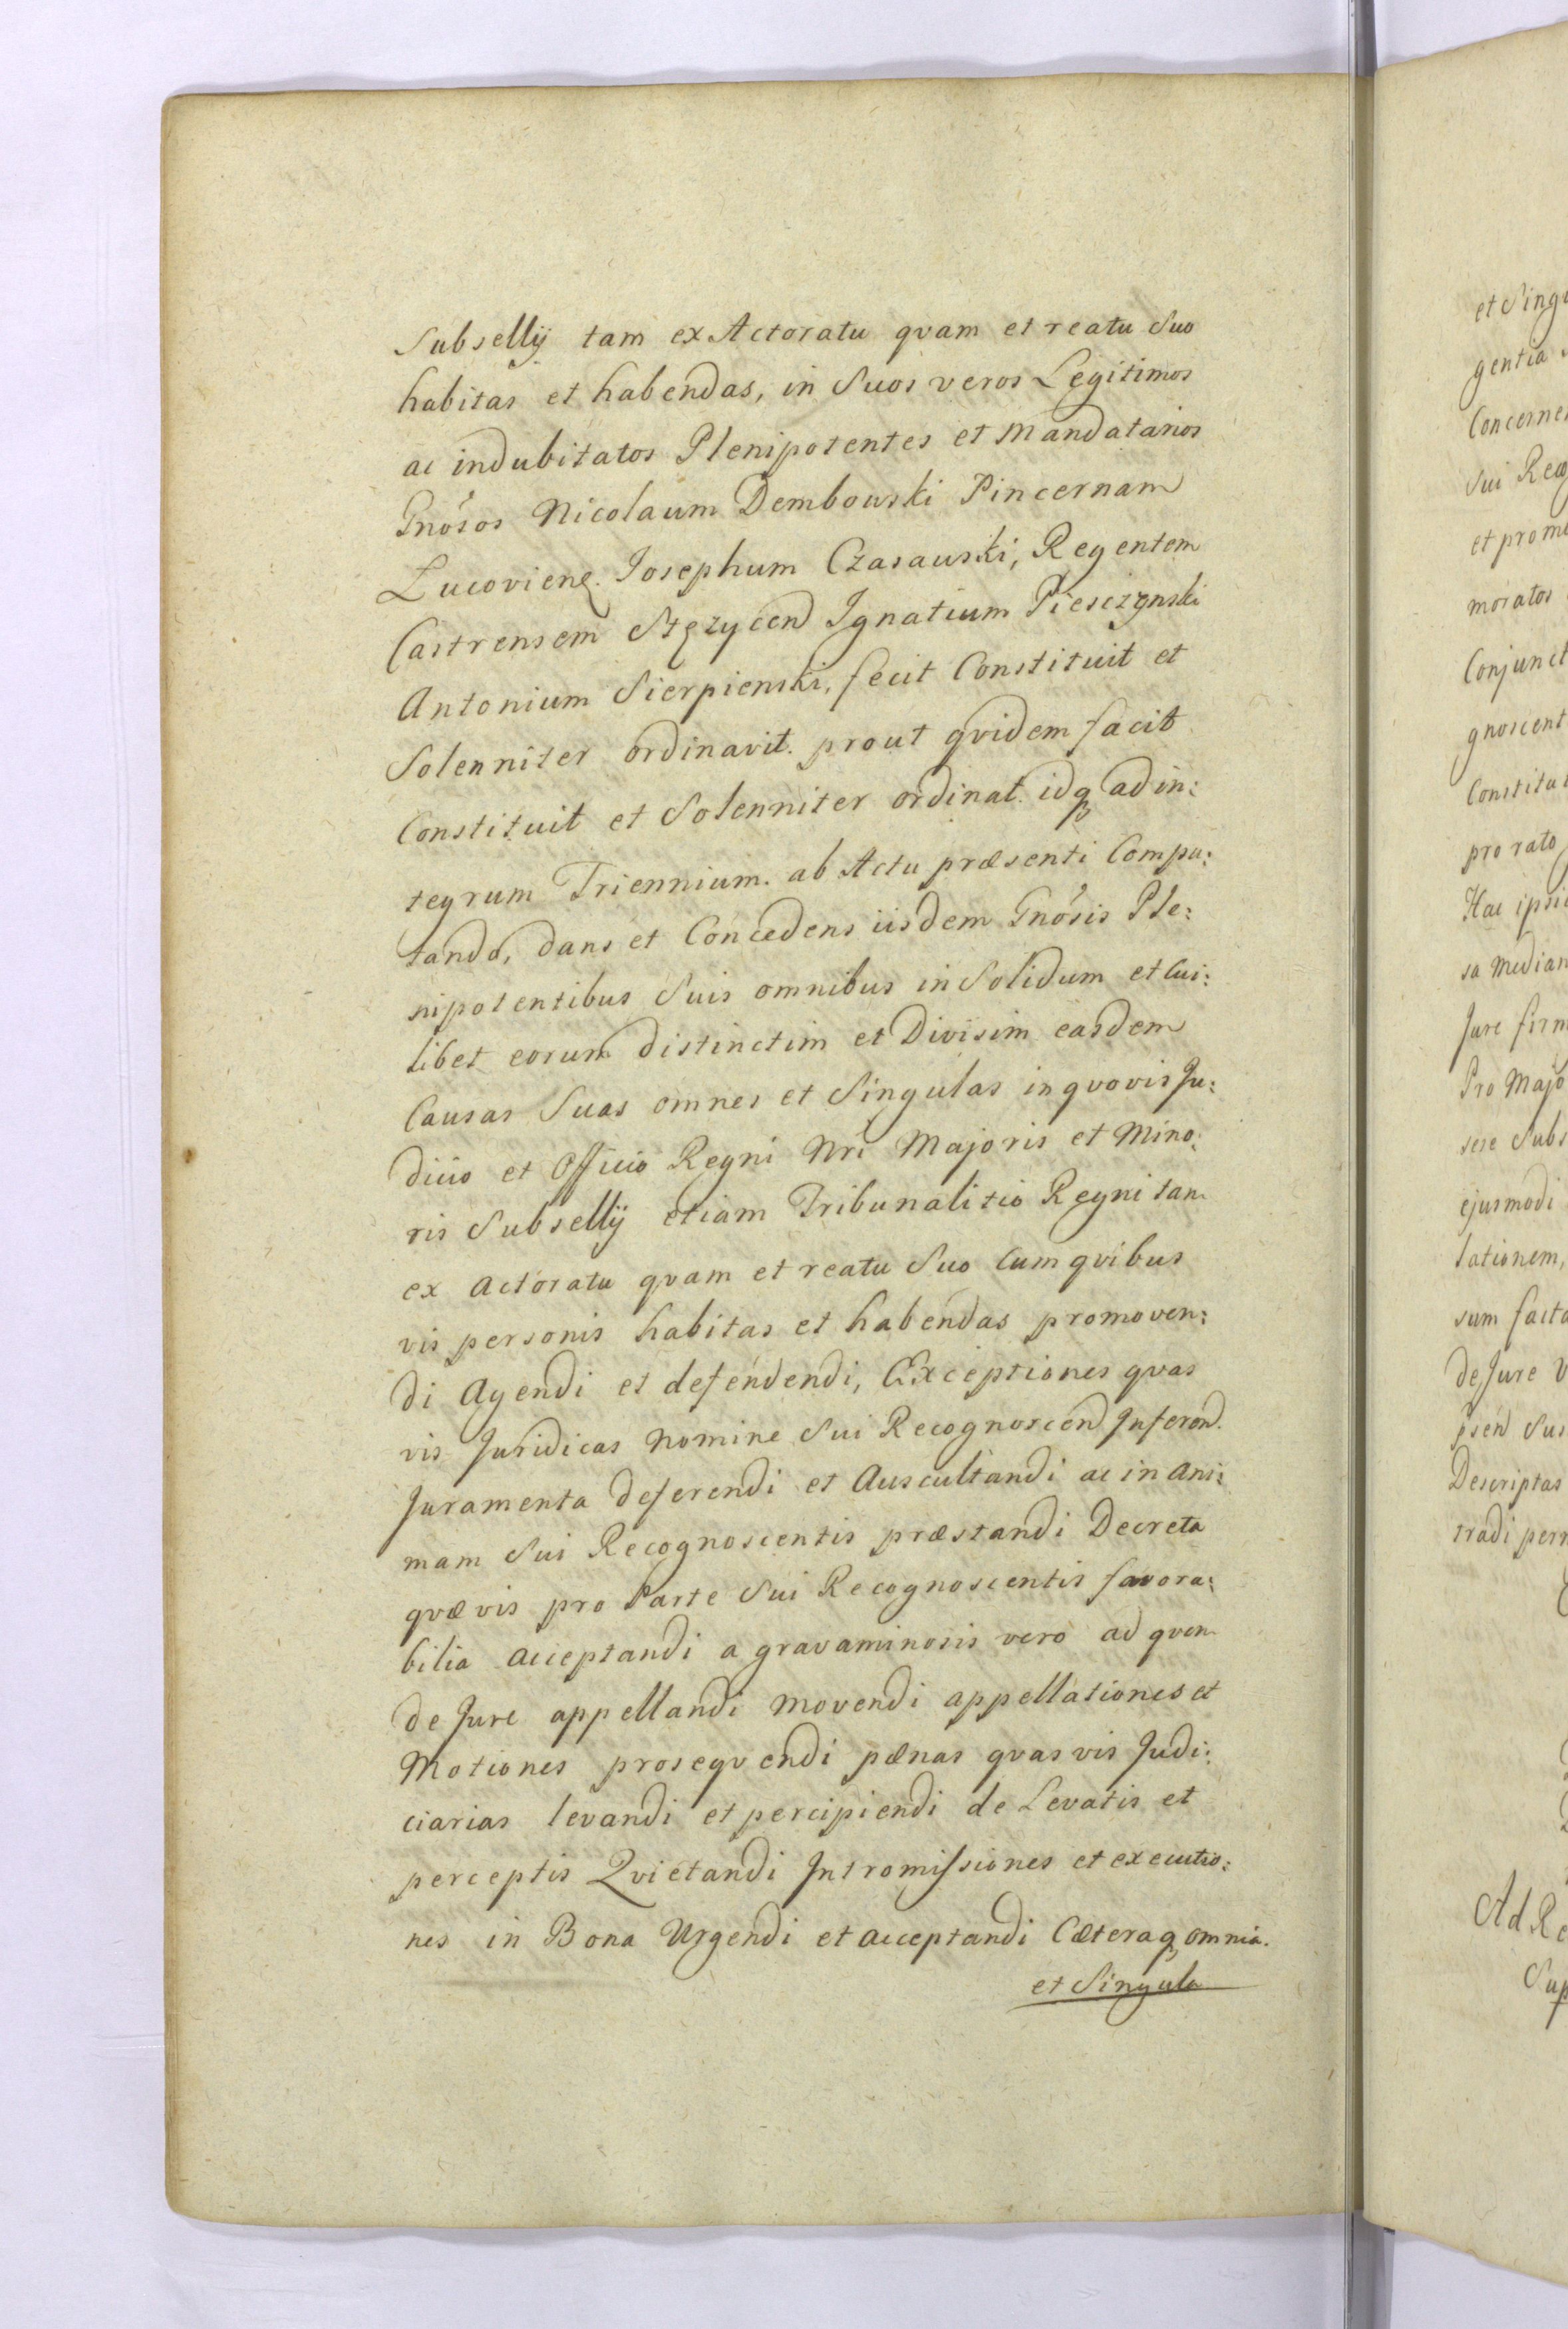 Subsellÿ tam ex Actoratu qvam et reatu Suo
habitas et habendas, in Suos veros Legitimos
ac indubitatos Plenipotentes et Mandatarios
Gnósos Nicolaum Dembowski Pincernam
Lucovien. Josephum Czasauski, Regentem
Castrensem Stęzycen Ignatium Piesczynski
Antonium Sierpienski, fecit Constituit et
Solenniter ordinavit. prout qvidem facit
Constituit et Solenniter ordinat. idq ad in:
tegrum Triennium. ab Actu præsenti Compu:
tando, dans et Concedens iisdem Gnósis Ple:
nipotentibus Suis omnibus in Solidum et Cui:
libet eorum distinctim et Divisim easdem
Causas Suas omnes et Singulas in qvovis Ju:
dicio et Officio Regni Nri Majoris et Mino:
ris Subsellÿ etiam Tribunalitio Regni tam
ex Actoratu qvam et reatu Suo Cum qvibus
vis personis habitas et habendas promoven:
di Agendi et defendendi, Exceptiones qvas
vis Juridicas Nomine Sui Recognoscen Inferend.
Juramenta deferendi et Auscultandi ac in Ani:
mam Sui Recognoscentis præstandi Decreta
qvævis pro Parte Sui Recognoscentis favora:
bilia acceptandi a gravaminosis vero ad qvem
de Jure appellandi movendi appellationes et
Motiones proseqvendi pænas qvas vis Judi:
ciarias levandi et percipiendi de Levatis et
perceptis Qvietandi Intromissiones et executio:
nes in Bona Urgendi et acceptandi Cæteraq omnia.
et Singula
et Sing
gentia
Concerne
Sui Reco
et prom
moratos
Conjunct
gnoscent
Constitu
pro rato
Hac ipsi
sa Median
Jure firm
Pro Majo
sese Subs
ejusmodi
tationem,
sum facta
de Jure V
psen Sus
Descriptas
tradi perm
Ad Re
Sup